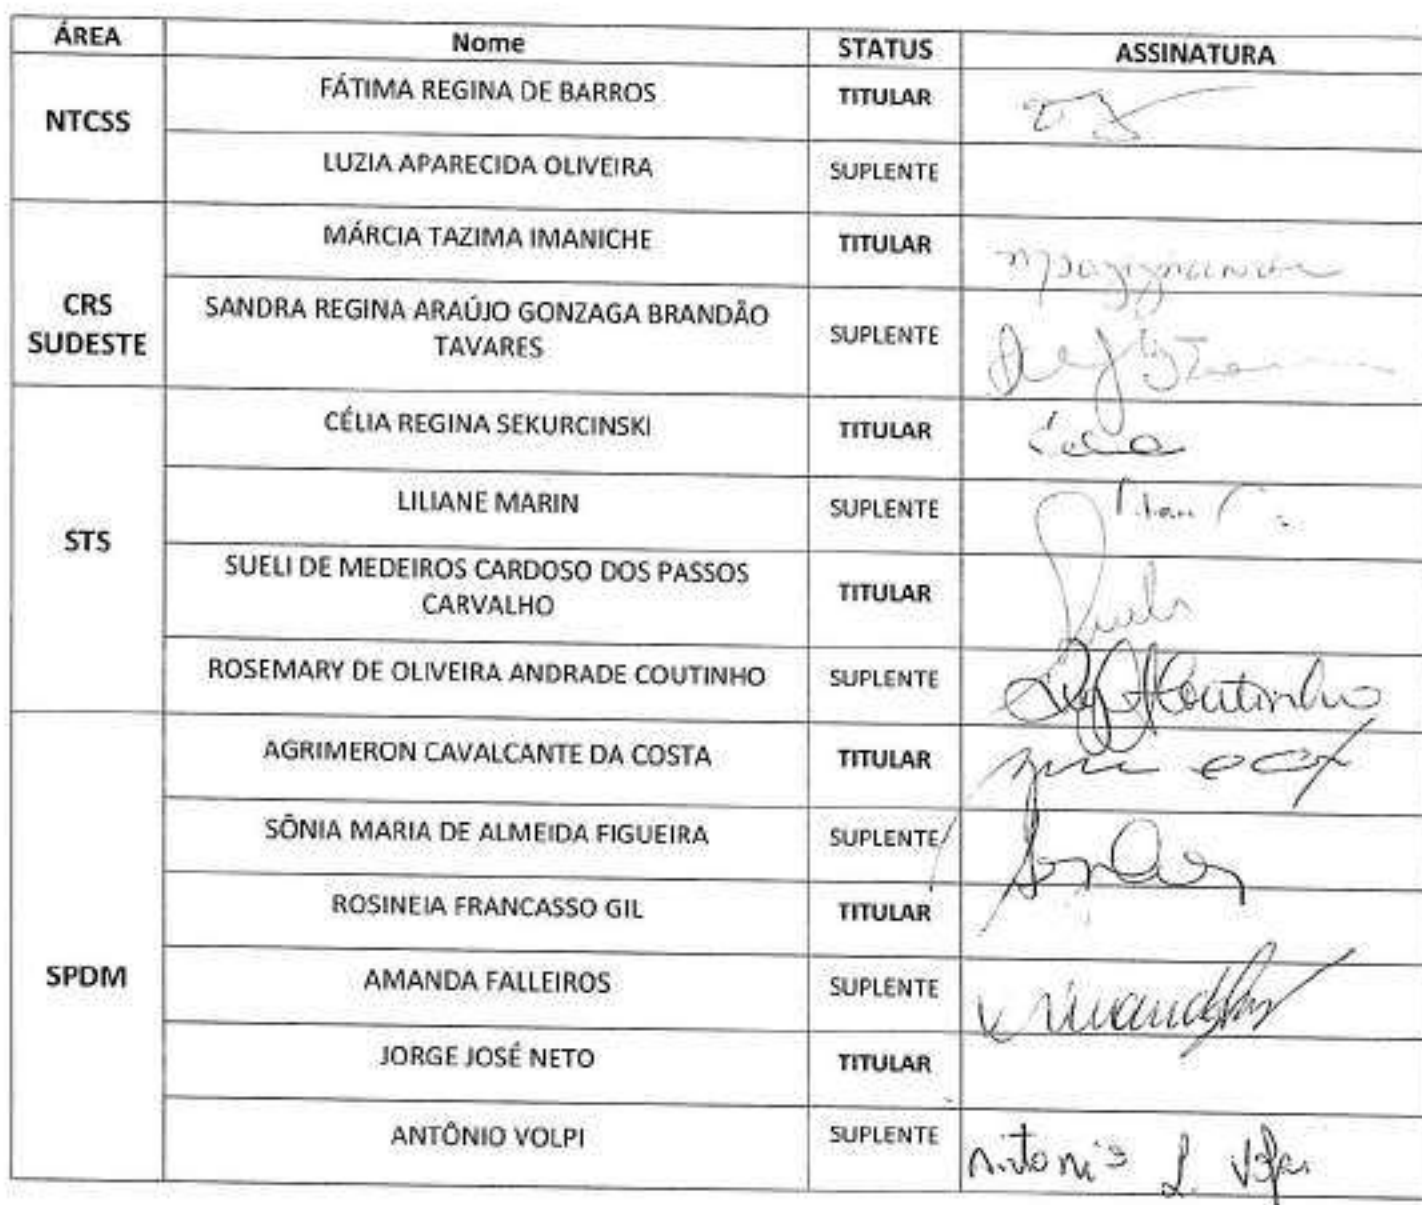 ÁREA Nome STATUS ASSINATURA
NTCSS
FÁTIMA REGINA DE BARROS TITULAR
LUZIA APARECIDA OLIVEIRA SUPLENTE
CRS
SUDESTE
MÁRCIA TAZIMA IMANICHE TITULAR
SANDRA REGINA ARAÚJO GONZAGA BRANDÃO
TAVARES
SUPLENTE
STS
CÉLIA REGINA SEKURCINSKI TITULAR
LILIANE MARIN SUPLENTE
SUELI DE MEDEIROS CARDOSO DOS PASSOS
CARVALHO
TITULAR
ROSEMARY DE OLIVEIRA ANDRADE COUTINHO SUPLENTE Coutinho
SPDM
AGRIMERON CAVALCANTE DA COSTA TITULAR
SÔNIA MARIA DE ALMEIDA FIGUEIRA SUPLENTE
ROSINEIA FRANCASSO GIL TITULAR
AMANDA FALLEIROS SUPLENTE
JORGE JOSÉ NETO TITULAR
ANTÔNIO VOLPI SUPLENTE Antonio L. Volpi